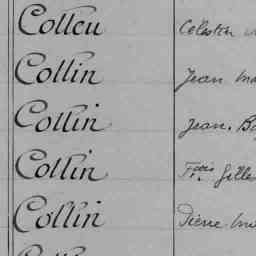 Colleu Célestin
Collin Jean
Collin Jean. Ba
Collin Fçois Gille
Collin Pierre